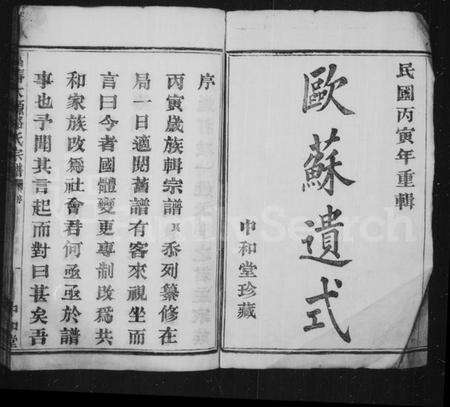 民國丙寅年重輯
歐蘇遺式
中和堂珍藏
序
丙寅歲族輯宗譜予忝列纂修在
局一日適閱舊譜有客來視坐而
言曰今者國體變更專制改為共
和家族改為社會君何亟亟於譜
事也予聞其言起而對曰甚矣吾
氏宗譜
中和堂
FamilySearch